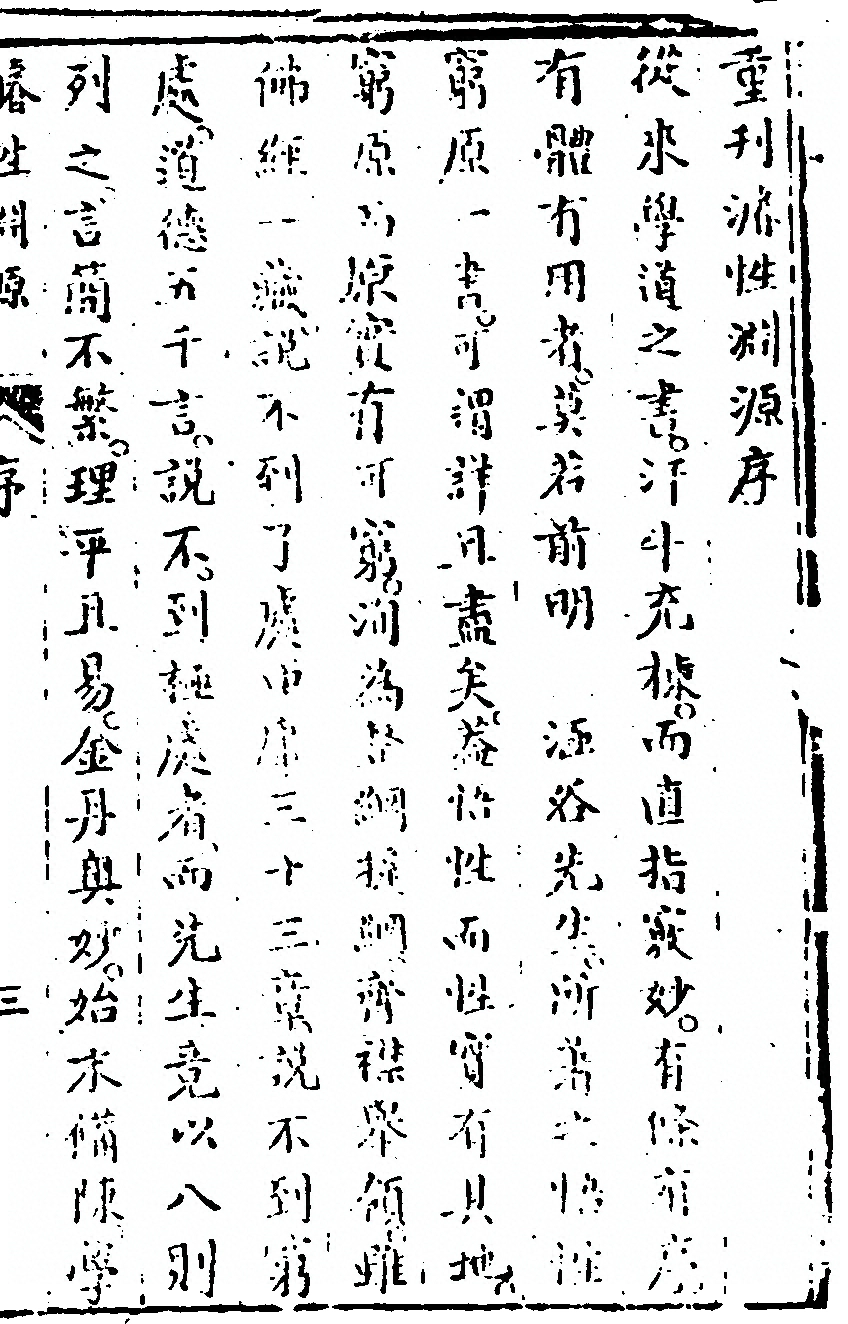 重刊濬性淵源序
從來學道之書。汗牛充棟。而直指竅妙。有條有序
有體有用者。莫若前明　涵谷先生。所著之悟性
窮原一書。可謂詳且盡矣。蓋悟性而性實有其地
窮原而原實有可窮。洵為挈綱振綱齊襟舉領雖
佛經一藏說不到了處中庸三十三章說不到窮
處。道德五千言。說不。到極處者、而先生竟以八則
列之、言簡不繁。理平且易。金丹奧妙。始末備陳學
濬性淵源　序　三